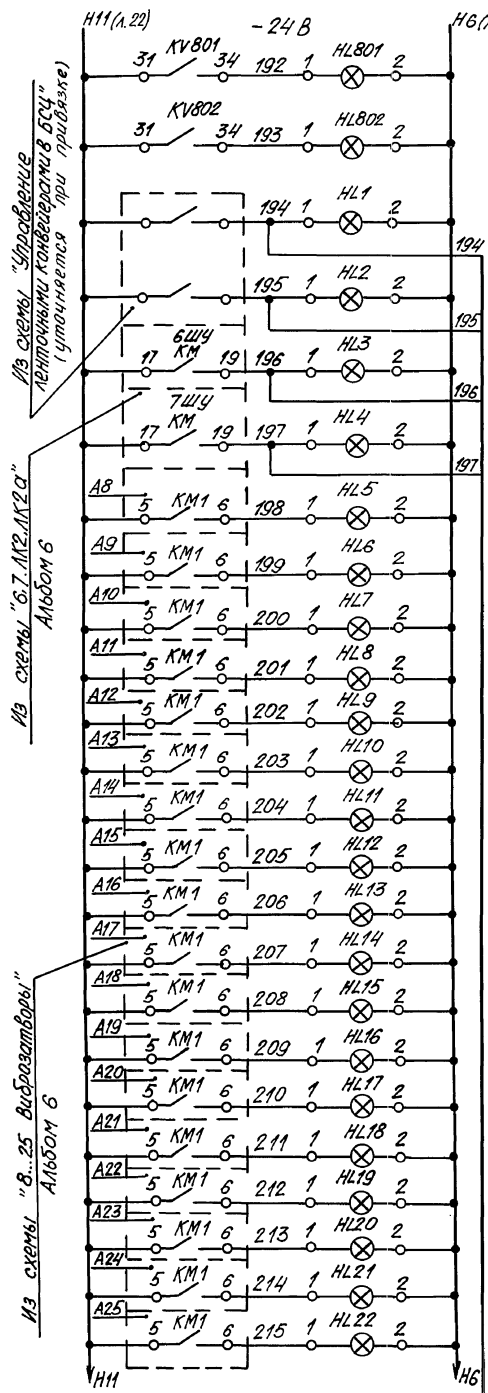 Н11(л.22) -24В Н6(л
31 KV801 34 192 1 HL801 2
31 KV802 34 193 1 HL802 2
194 1 HL1 2
194
195 1 HL2 2
195
6ШУ
17 КМ 19 196 1 HL3 2
196
7ШУ
17 КМ 19 197 1 HL4 2
197
А8
5 КМ1 6 198 1 HL5 2
А9
5 КМ1 6 199 1 HL6 2
А10
5 КМ1 6 200 1 HL7 2
А11
5 КМ1 6 201 1 HL8 2
А12
5 КМ1 6 202 1 HL9 2
А13
5 КМ1 6 203 1 HL10 2
А14
5 КМ1 6 204 1 HL11 2
А15
5 КМ1 6 205 1 HL12 2
А16
5 КМ1 6 206 1 HL13 2
А17
5 КМ1 6 207 1 HL14 2
А18
5 КМ1 6 208 1 HL15 2
А19
5 КМ1 6 209 1 HL16 2
А20
5 КМ1 6 210 1 HL17 2
А21
5 КМ1 6 211 1 HL18 2
А22
5 КМ1 6 212 1 HL19 2
А23
5 КМ1 6 213 1 HL20 2
А24
5 КМ1 6 214 1 HL21 2
А25
5 КМ1 6 215 1 HL22 2
Н11 Н6
Из схемы "Управление
ленточными конвейерами в БСЦ"
(уточняется при привязке)
Из схемы "6.7.ЛК2.ЛК2а"
Альбом 6
Из схемы "8...25 Виброзатворы"
Альбом 6